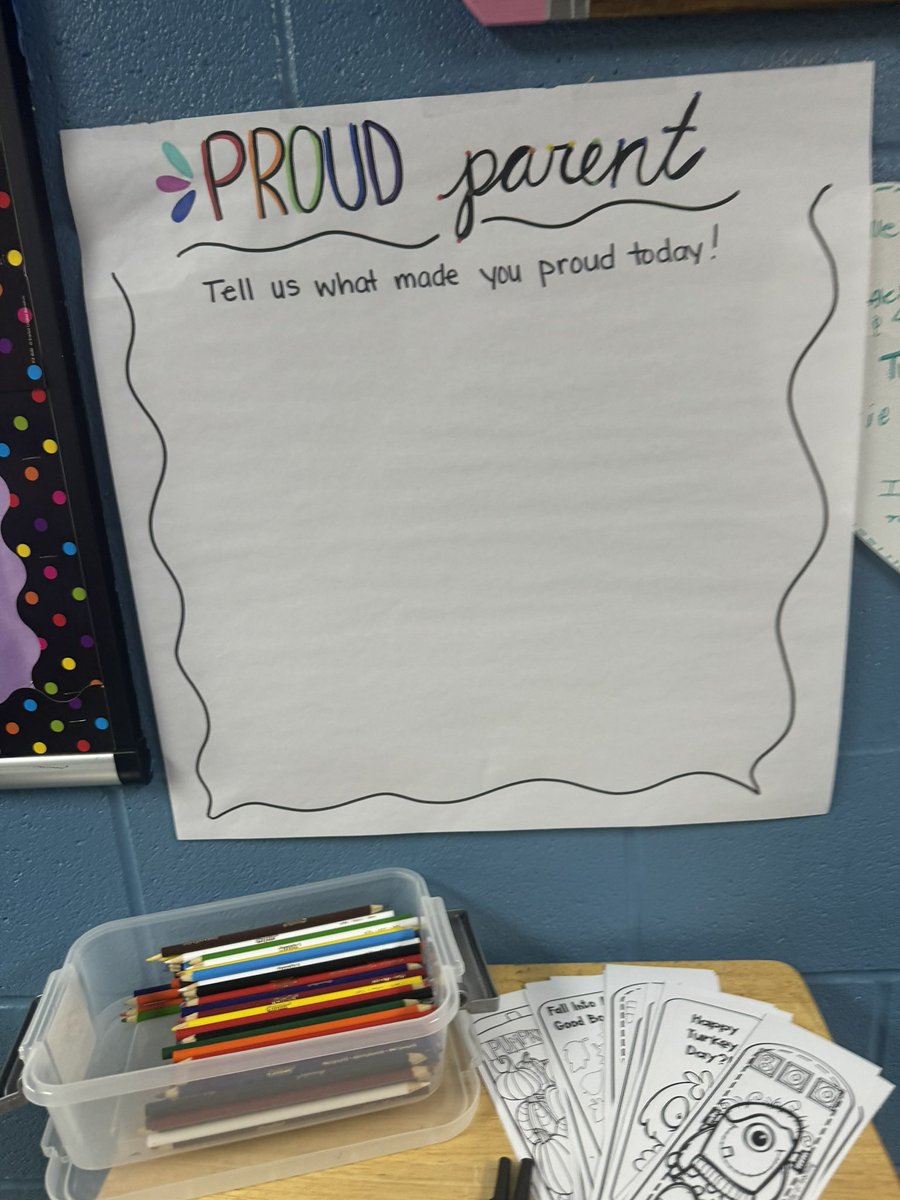 PROUD parent
Tell us what made you proud today!
Fall Into
Good
Happy
Turkey
Day?!